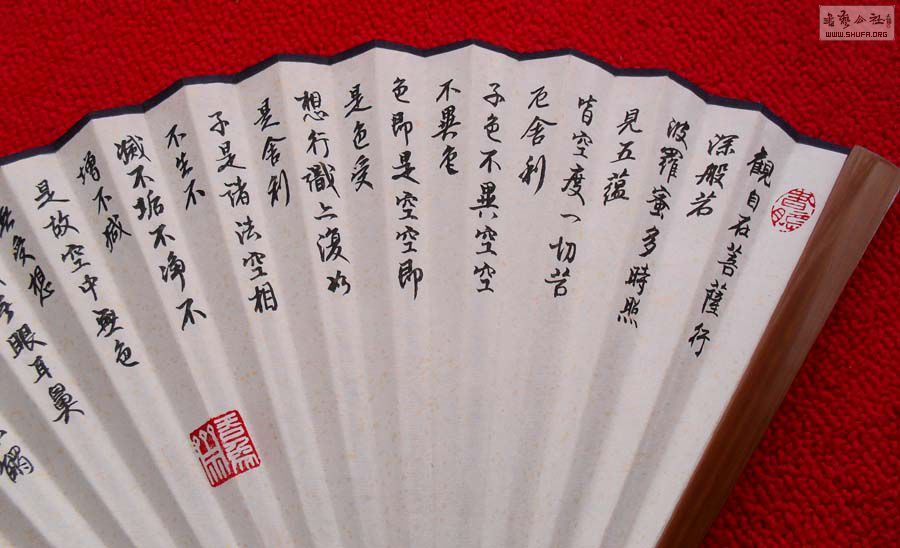 觀自在菩薩行
深般若
波羅蜜多時照
見五蘊
皆空度一切苦
厄舍利
子色不異空空
不異色
色即是空空即
是色受
想行識亦復如
是舍利
子是諸法空相
不生不
滅不垢不净不
增不減
是故空中無色
無受想
眼耳鼻
書藝公社
WWW.SHUFA.ORG